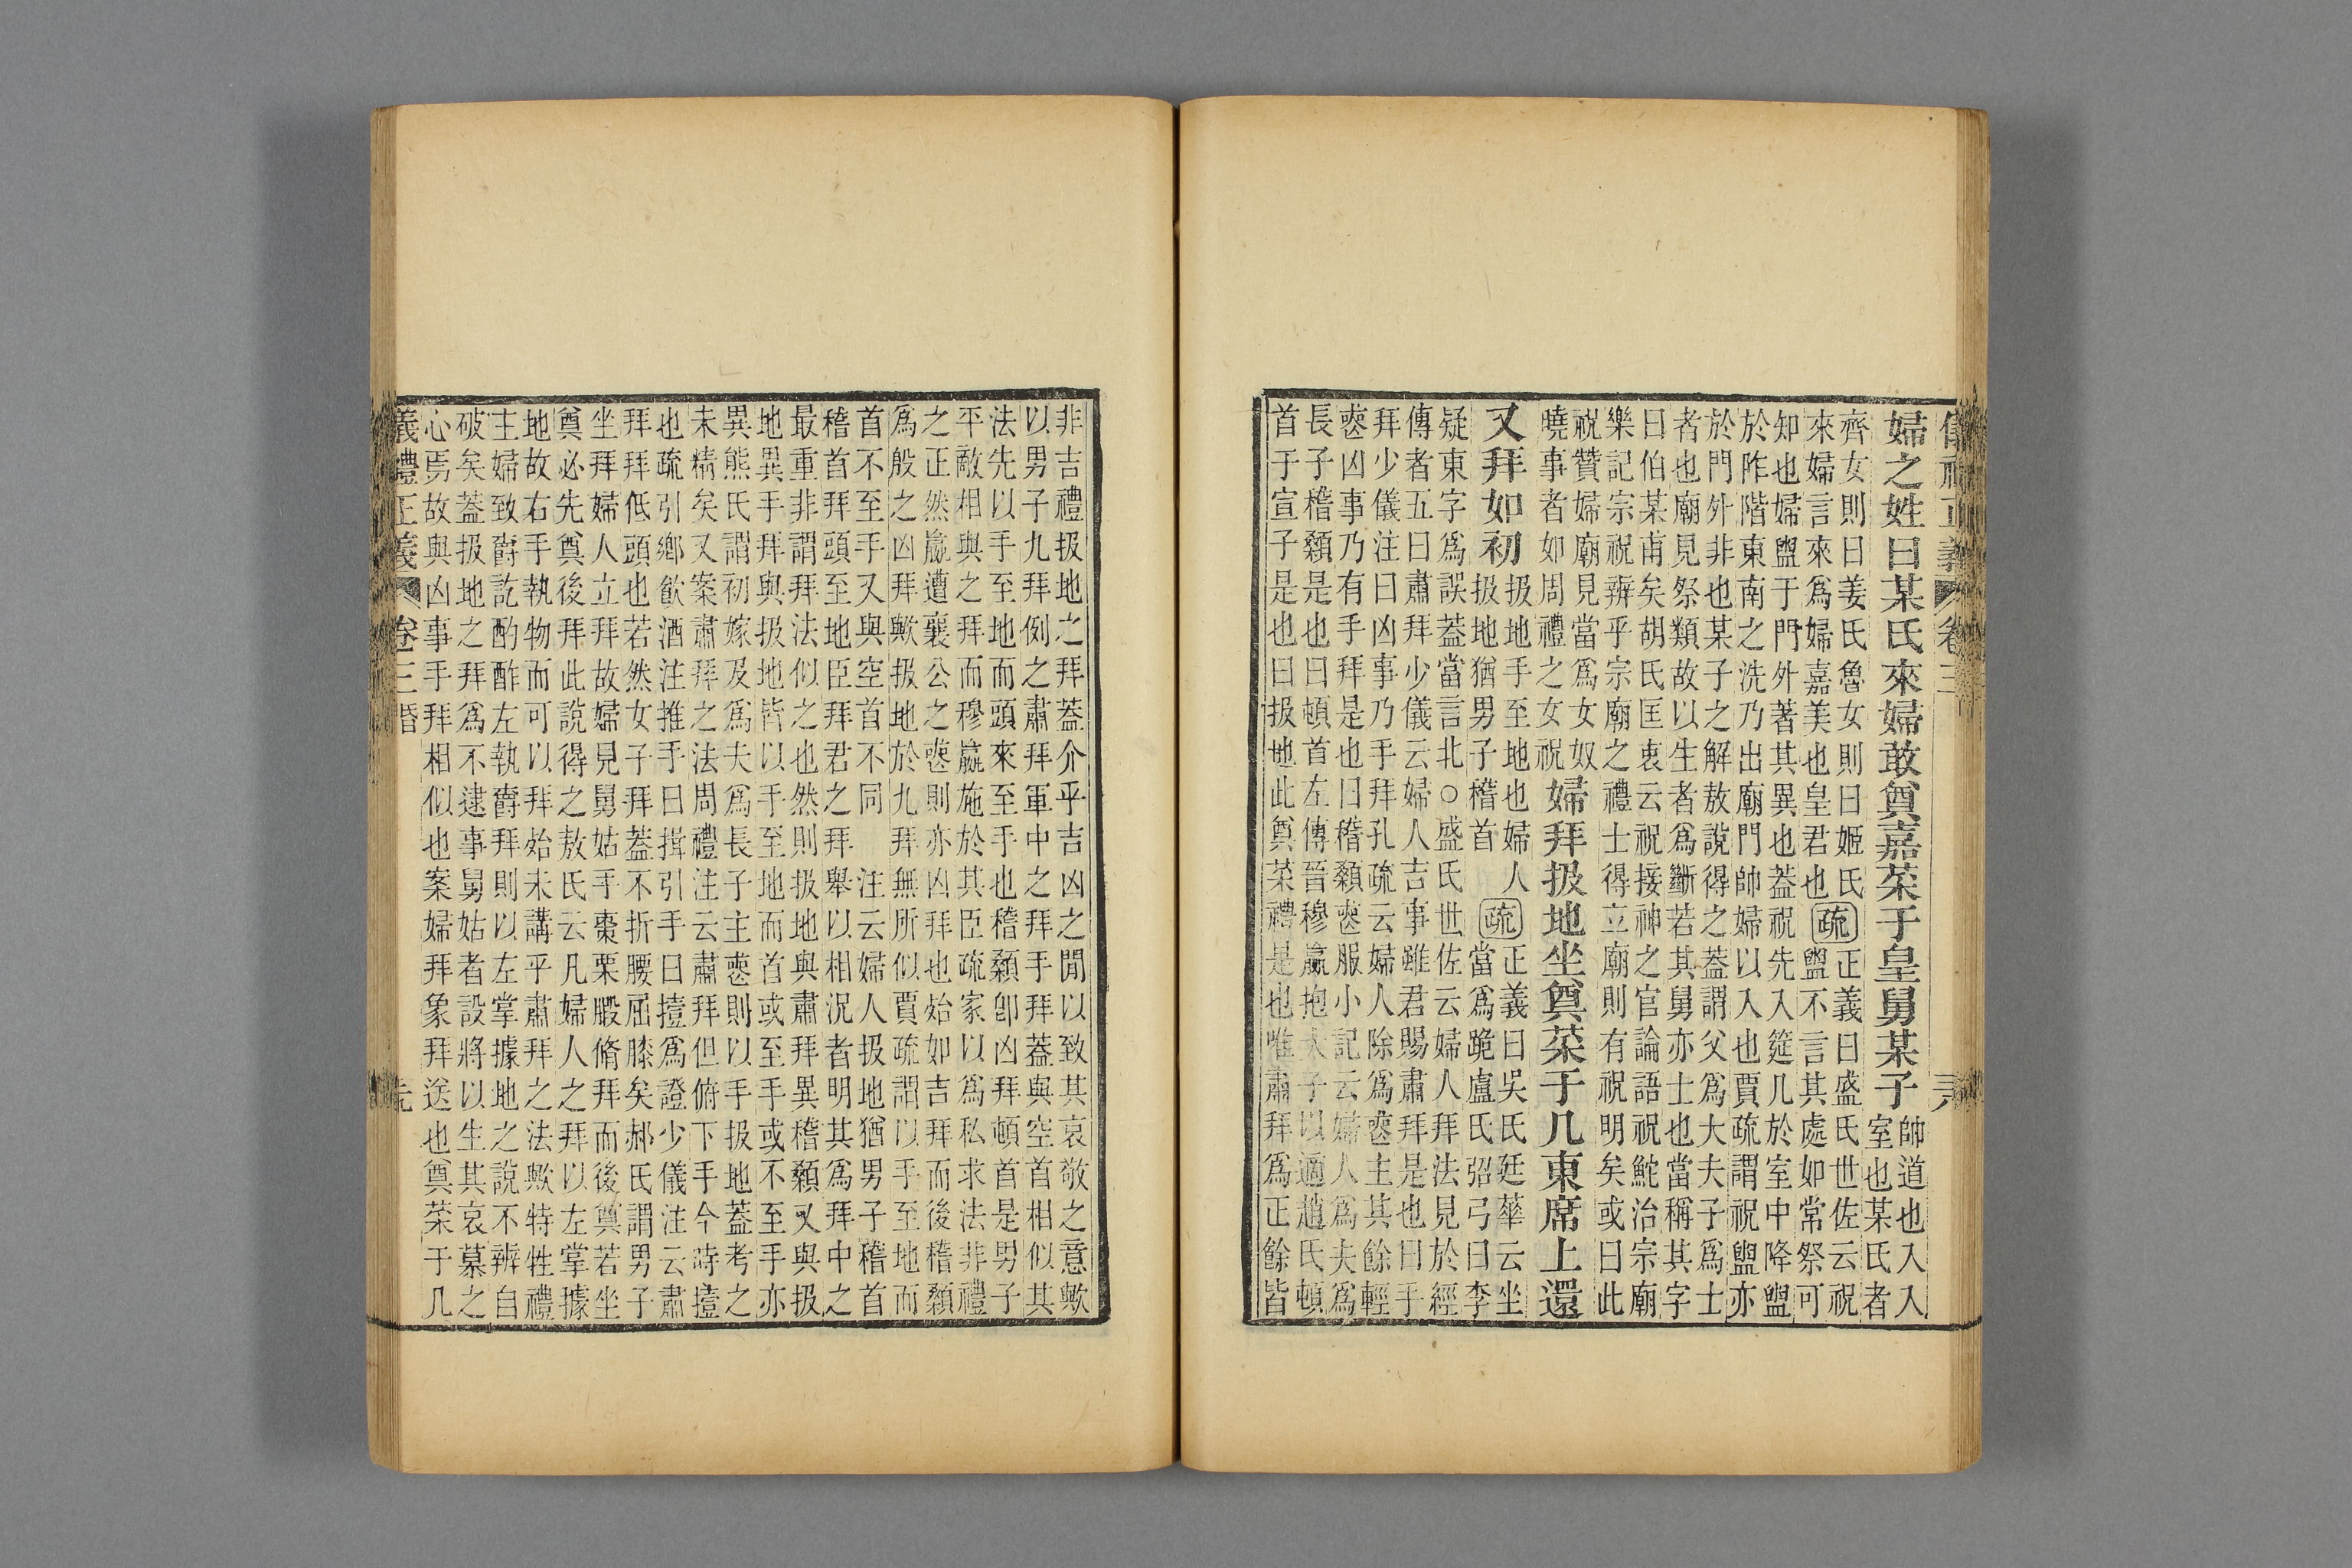 儀禮正義 卷三
婦之姓曰某氏來婦敢奠嘉菜于皇舅某子帥道也入入
室也某氏者
齊女則曰姜氏魯女則曰姬氏
來婦言來爲婦嘉美也皇君也
疏
正義曰盛氏世佐云祝
盥不言其處如常祭可
知也婦盥于門外著其異也蓋祝先入筵几於室中降盥
於阼階東南之洗乃出廟門帥婦以入也賈疏謂祝盥亦
於門外非也某子之解敖說得之蓋謂父爲大夫子爲士
者也廟見祭類故以生者爲斷若其舅亦士也當稱其字
曰伯某甫矣胡氏匡衷云祝接神之官論語祝鮀治宗廟
樂記宗祝辨乎宗廟之禮士得立廟則有祝明矣或曰此
祝贊婦廟見當爲女奴
曉事者如周禮之女祝
婦拜扱地坐奠菜于几東席上還
又拜如初
扱地手至地也婦人
扱地猶男子稽首
疏
正義曰吳氏廷華云坐
當爲跪盧氏弨弓曰李
疑東字爲誤蓋當言北○盛氏世佐云婦人拜法見於經
傳者五曰肅拜少儀云婦人吉事雖君賜肅拜是也曰手
拜少儀注曰凶事乃手拜孔疏云婦人除爲喪主其餘輕
喪凶事乃有手拜是也曰稽顙喪服小記云婦人爲夫爲
長子稽顙是也曰頓首左傳晉穆嬴抱大子以適趙氏頓
首于宣子是也曰扱地此奠菜禮是也唯肅拜爲正餘皆
非吉禮扱地之拜蓋介乎吉凶之閒以致其哀敬之意歟
以男子九拜例之肅拜軍中之拜手拜蓋與空首相似其
法先以手至地而頭來至手也稽顙卽凶拜頓首是男子
平敵相與之拜而穆嬴施於其臣疏家以爲私求法非禮
之正然嬴遭襄公之喪則亦凶拜也始如吉拜而後稽顙
爲殷之凶拜歟扱地於九拜無所似賈疏謂以手至地而
首不至手又與空首不同 注云婦人扱地猶男子稽首
稽首拜頭至地臣拜君之拜 舉以相況者明其爲拜中之
最重非謂拜法似之也然則扱地與肅拜異稽顙又與扱
地異手拜與扱地皆以手至地而首或至手或不至手亦
異熊氏謂初嫁及爲夫爲長子主喪則以手扱地蓋考之
未精矣又案肅拜之法周禮注云肅拜但俯下手今時擡
也疏引鄉飲酒注推手曰揖引手曰擡爲證少儀注云肅
拜拜低頭也若然女子拜蓋不折腰屈膝矣郝氏謂男子
坐拜婦人立拜故婦見舅姑手棗栗腶脩拜而後奠若坐
奠必先奠後拜此說得之敖氏云凡婦人之拜以左掌據
地故右手執物而可以拜始未講乎肅拜之法歟特牲禮
主婦致爵訖酌酢左執爵拜則以左掌據地之說不辨自
破矣蓋扱地之拜爲不逮事舅姑者設將以生其哀慕之
心焉故與凶事手拜相似也案婦拜象拜送也奠菜于几
義禮正義 卷三 婚